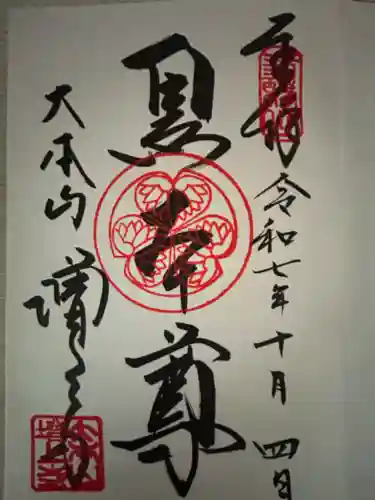 奉拝
令和七年十月四日
黒本尊
大本山
増上寺